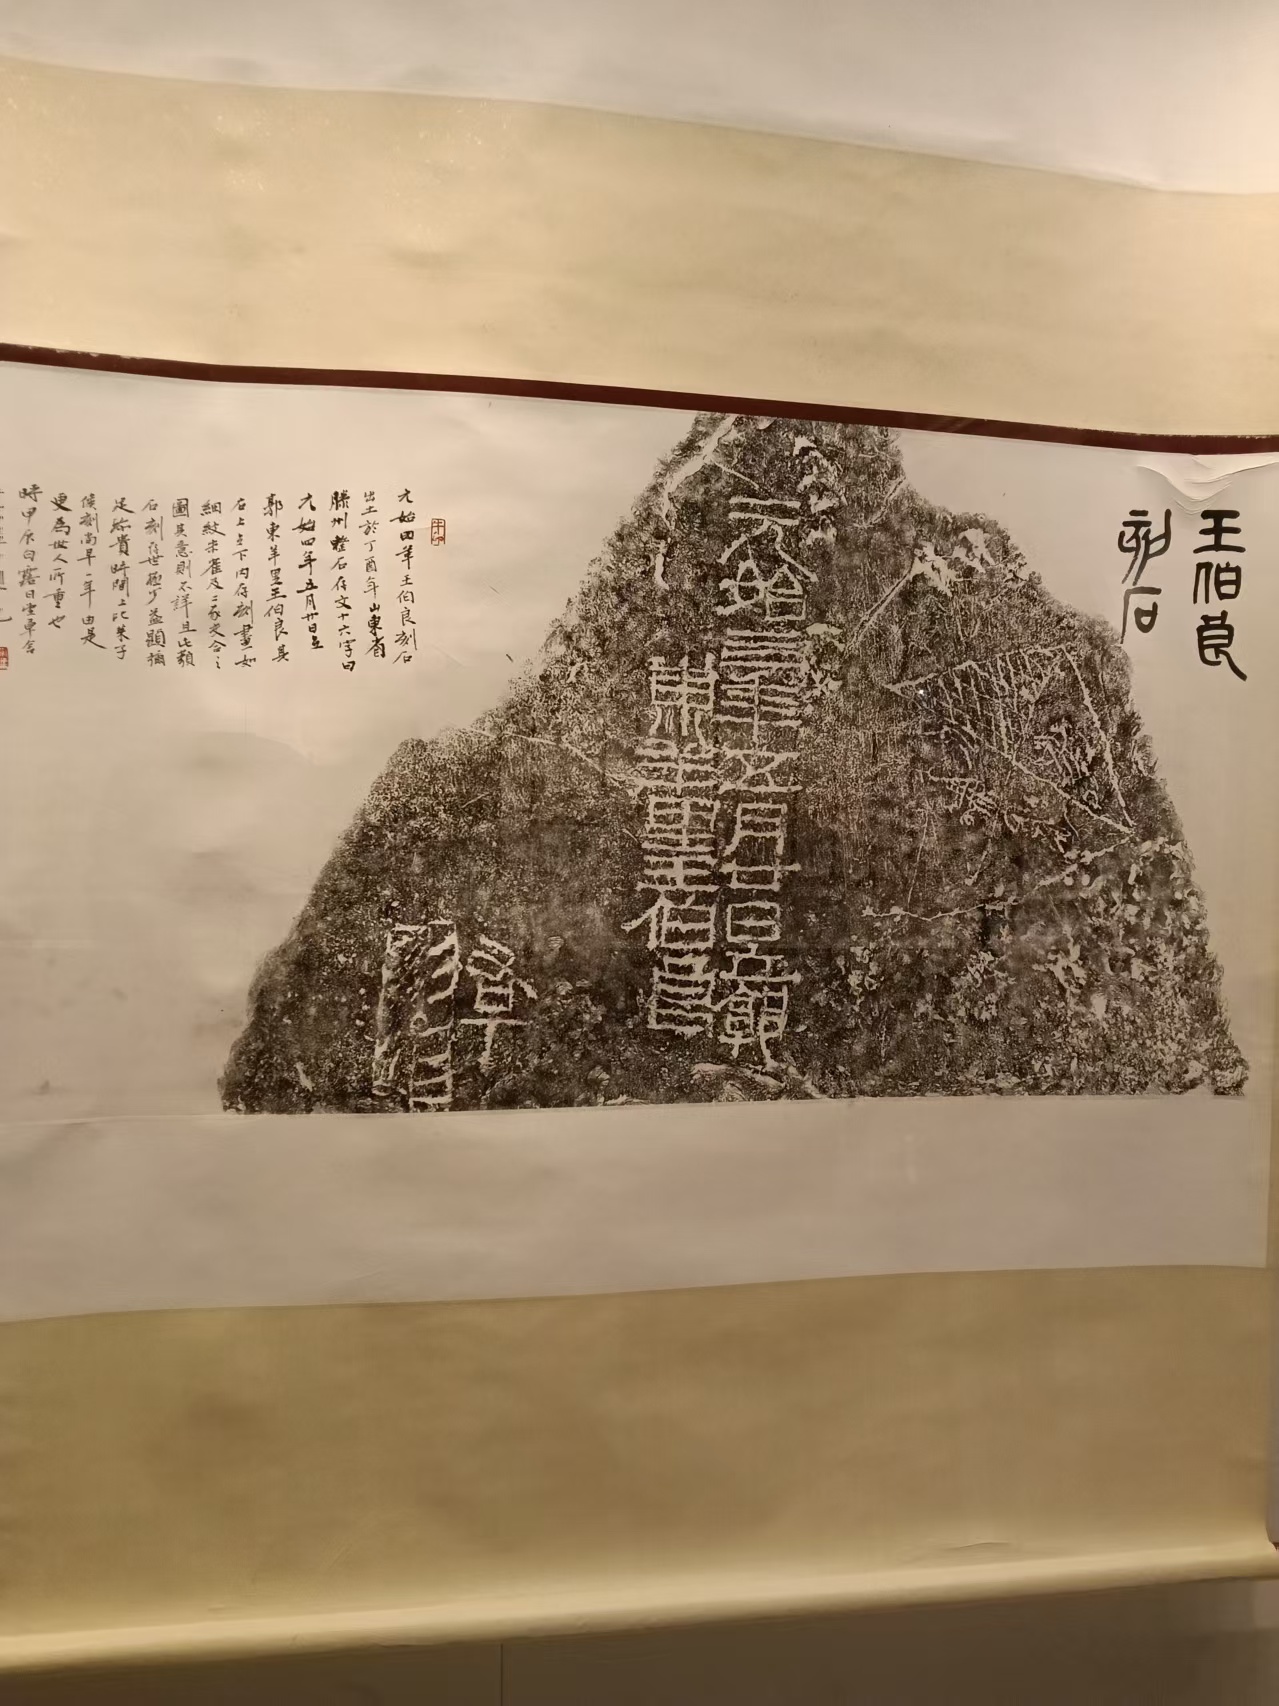 王伯良
刻石
元始三年五月廿日立郭
東羊里王伯良
元始四年王伯良刻石
出土於丁酉年山東省
滕州整石存文十六字曰
元始四年五月廿日立
郭東羊里王伯良其
右上左下內存刻畫如
細紋朱雀及二豕交合之
圖其意則不詳且此類
石刻存世極少益顯彌
足珍貴時間上比朱子
侯刻尚早一年由是
更為世人所重也
時甲辰白露日雲車舍